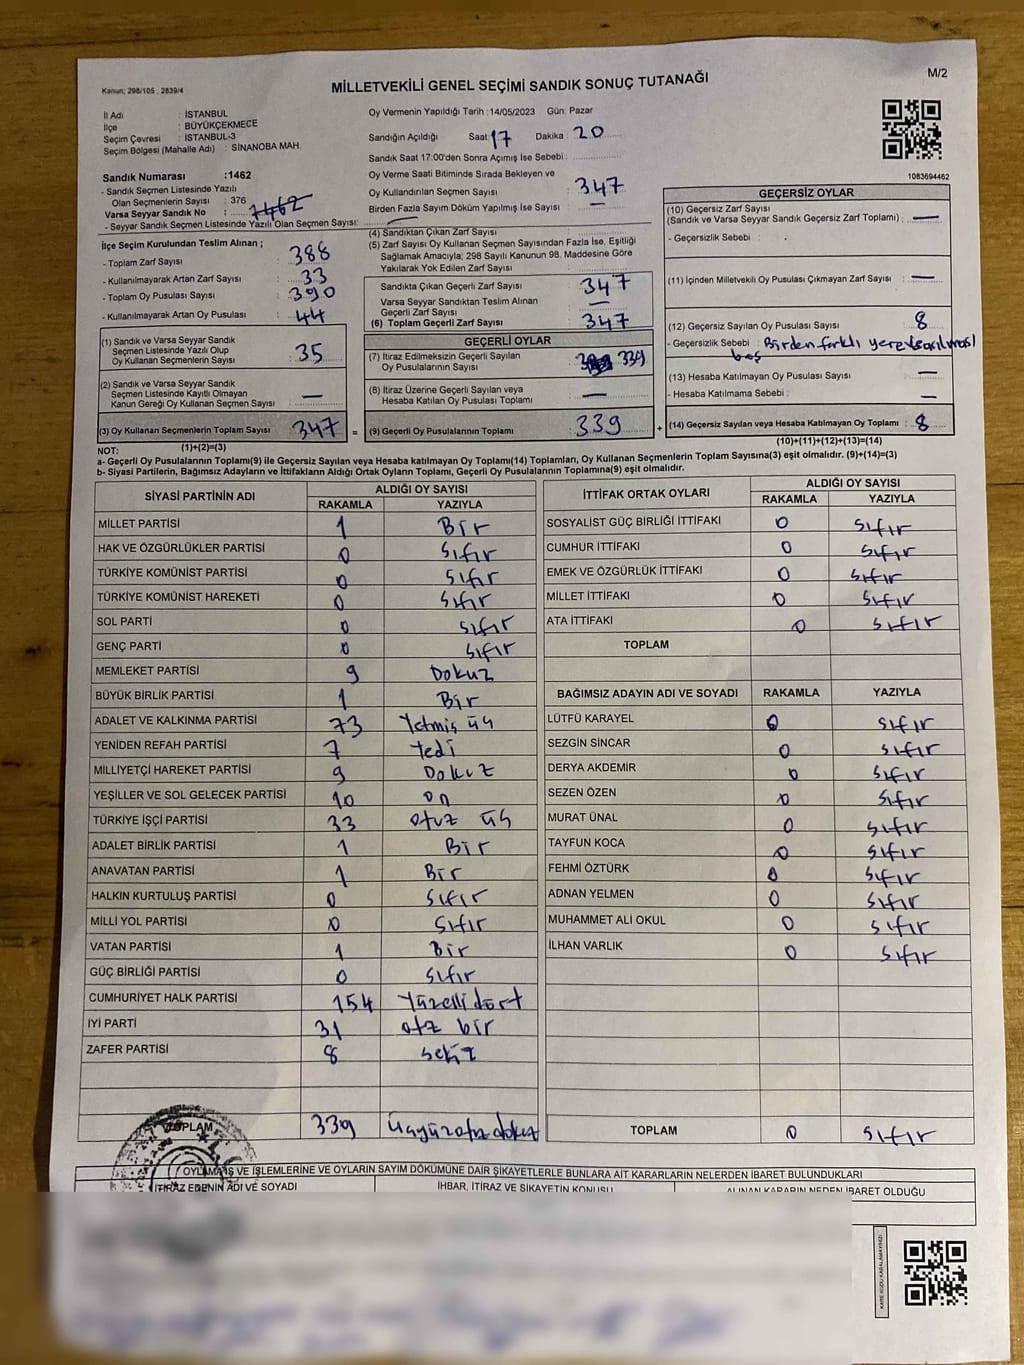 Kanun: 298/105 , 2839/4
MİLLETVEKİLİ GENEL SEÇİMİ SANDIK SONUÇ TUTANAĞI
M/2
İl Adı : İSTANBUL
İlçe : BÜYÜKÇEKMECE
Seçim Çevresi : İSTANBUL-3
Seçim Bölgesi (Mahalle Adı) : SİNANOBA MAH.
Sandık Numarası :1462
- Sandık Seçmen Listesinde Yazılı
Olan Seçmenlerin Sayısı : 376
Varsa Seyyar Sandık No : 1462
- Seyyar Sandık Seçmen Listesinde Yazılı Olan Seçmen Sayısı:
İlçe Seçim Kurulundan Teslim Alınan ;
- Toplam Zarf Sayısı : 388
- Kullanılmayarak Artan Zarf Sayısı : 33
- Toplam Oy Pusulası Sayısı : 390
- Kullanılmayarak Artan Oy Pusulası : 44
(1) Sandık ve Varsa Seyyar Sandık
Seçmen Listesinde Yazılı Olup
Oy Kullanan Seçmenlerin Sayısı : 35
(2) Sandık ve Varsa Seyyar Sandık
Seçmen Listesinde Kayıtlı Olmayan
Kanun Gereği Oy Kullanan Seçmen Sayısı : —
(3) Oy Kullanan Seçmenlerin Toplam Sayısı : 347 =
(1)+(2)=(3)
Oy Vermenin Yapıldığı Tarih :14/05/2023 Gün: Pazar
Sandığın Açıldığı Saat: 17 Dakika : 20
Sandık Saat 17:00'den Sonra Açımış İse Sebebi :
Oy Verme Saati Bitiminde Sırada Bekleyen ve
Oy Kullandırılan Seçmen Sayısı : 347
Birden Fazla Sayım Döküm Yapılmış İse Sayısı : —
(4) Sandıktan Çıkan Zarf Sayısı
(5) Zarf Sayısı Oy Kullanan Seçmen Sayısından Fazla İse, Eşitliği
Sağlamak Amacıyla; 298 Sayılı Kanunun 98. Maddesine Göre
Yakılarak Yok Edilen Zarf Sayısı :
Sandıkta Çıkan Geçerli Zarf Sayısı : 347
Varsa Seyyar Sandıktan Teslim Alınan
Geçerli Zarf Sayısı : —
(6) Toplam Geçerli Zarf Sayısı : 347
GEÇERLİ OYLAR
(7) İtiraz Edilmeksizin Geçerli Sayılan
Oy Pusulalarının Sayısı : 339
(8) İtiraz Üzerine Geçerli Sayılan veya
Hesaba Katılan Oy Pusulası Toplamı : —
(9) Geçerli Oy Pusulalarının Toplamı : 339 +
1083694462
GEÇERSİZ OYLAR
(10) Geçersiz Zarf Sayısı
(Sandık ve Varsa Seyyar Sandık Geçersiz Zarf Toplamı) : —
- Geçersizlik Sebebi :
(11) İçinden Milletvekili Oy Pusulası Çıkmayan Zarf Sayısı : —
(12) Geçersiz Sayılan Oy Pusulası Sayısı : 8
- Geçersizlik Sebebi : Birden farklı yere basılması
boş
(13) Hesaba Katılmayan Oy Pusulası Sayısı : —
- Hesaba Katılmama Sebebi : —
(14) Geçersiz Sayılan veya Hesaba Katılmayan Oy Toplamı : 8
(10)+(11)+(12)+(13)=(14)
NOT:
a- Geçerli Oy Pusulalarının Toplamı(9) ile Geçersiz Sayılan veya Hesaba katılmayan Oy Toplamı(14) Toplamları, Oy Kullanan Seçmenlerin Toplam Sayısına(3) eşit olmalıdır. (9)+(14)=(3)
b- Siyasi Partilerin, Bağımsız Adayların ve İttifakların Aldığı Ortak Oyların Toplamı, Geçerli Oy Pusulalarının Toplamına(9) eşit olmalıdır.
SİYASİ PARTİNİN ADI ALDIĞI OY SAYISI
RAKAMLA YAZIYLA
MİLLET PARTİSİ 1 Bir
HAK VE ÖZGÜRLÜKLER PARTİSİ 0 sıfır
TÜRKİYE KOMÜNİST PARTİSİ 0 sıfır
TÜRKİYE KOMÜNİST HAREKETİ 0 sıfır
SOL PARTİ 0 sıfır
GENÇ PARTİ 0 sıfır
MEMLEKET PARTİSİ 9 Dokuz
BÜYÜK BİRLİK PARTİSİ 1 Bir
ADALET VE KALKINMA PARTİSİ 73 Yetmiş üç
YENİDEN REFAH PARTİSİ 7 Yedi
MİLLİYETÇİ HAREKET PARTİSİ 9 Dokuz
YEŞİLLER VE SOL GELECEK PARTİSİ 10 on
TÜRKİYE İŞÇİ PARTİSİ 33 otuz üç
ADALET BİRLİK PARTİSİ 1 Bir
ANAVATAN PARTİSİ 1 Bir
HALKIN KURTULUŞ PARTİSİ 0 sıfır
MİLLİ YOL PARTİSİ 0 sıfır
VATAN PARTİSİ 1 Bir
GÜÇ BİRLİĞİ PARTİSİ 0 sıfır
CUMHURİYET HALK PARTİSİ 154 Yüzelli dört
İYİ PARTİ 31 otz bir
ZAFER PARTİSİ 8 sekiz
TOPLAM 339 Üçyüzotuz dokuz
İTTİFAK ORTAK OYLARI ALDIĞI OY SAYISI
RAKAMLA YAZIYLA
SOSYALİST GÜÇ BİRLİĞİ İTTİFAKI 0 sıfır
CUMHUR İTTİFAKI 0 sıfır
EMEK VE ÖZGÜRLÜK İTTİFAKI 0 sıfır
MİLLET İTTİFAKI 0 sıfır
ATA İTTİFAKI 0 sıfır
TOPLAM
BAĞIMSIZ ADAYIN ADI VE SOYADI RAKAMLA YAZIYLA
LÜTFÜ KARAYEL 0 sıfır
SEZGİN SİNCAR 0 sıfır
DERYA AKDEMİR 0 sıfır
SEZEN ÖZEN 0 sıfır
MURAT ÜNAL 0 sıfır
TAYFUN KOCA 0 sıfır
FEHMİ ÖZTÜRK 0 sıfır
ADNAN YELMEN 0 sıfır
MUHAMMET ALİ OKUL 0 sıfır
İLHAN VARLIK 0 sıfır
TOPLAM 0 sıfır
OYLAMA İŞ VE İŞLEMLERİNE VE OYLARIN SAYIM DÖKÜMÜNE DAİR ŞİKAYETLERLE BUNLARA AİT KARARLARIN NELERDEN İBARET BULUNDUKLARI
İTİRAZ EDENİN ADI VE SOYADI İHBAR, İTİRAZ VE ŞİKAYETİN KONUSU ALINAN KARARIN NEDEN İBARET OLDUĞU